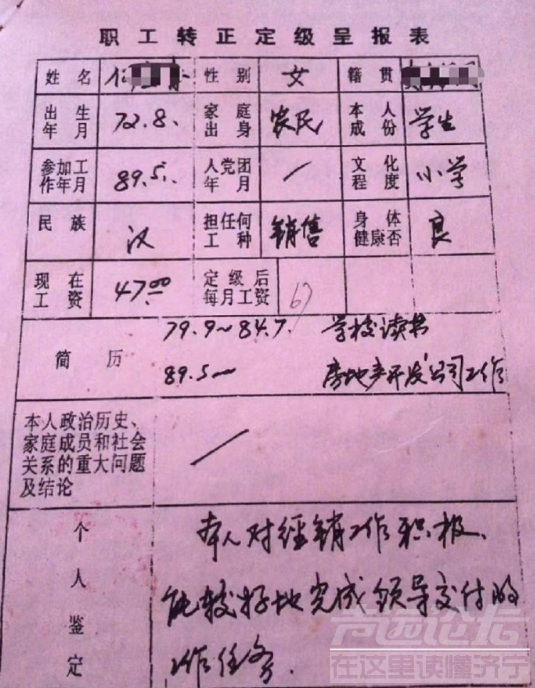 职工转正定级呈报表
姓名 性别 女 籍贯
出生年月 72.8. 家庭出身 农民 本人成份 学生
参加工作年月 89.5. 入党团年月 / 文化程度 小学
民族 汉 担任何工种 销售 身体健康否 良
现在工资 47.00 定级后每月工资 67
简历 79.9~84.7. 学校读书
89.5— 房地产开发公司工作
本人政治历史、
家庭成员和社会
关系的重大问题
及结论
/
个人鉴定
本人对经销工作积极、
能较好地完成领导交付的
工作任务.
声西论坛
在这里读懂济宁